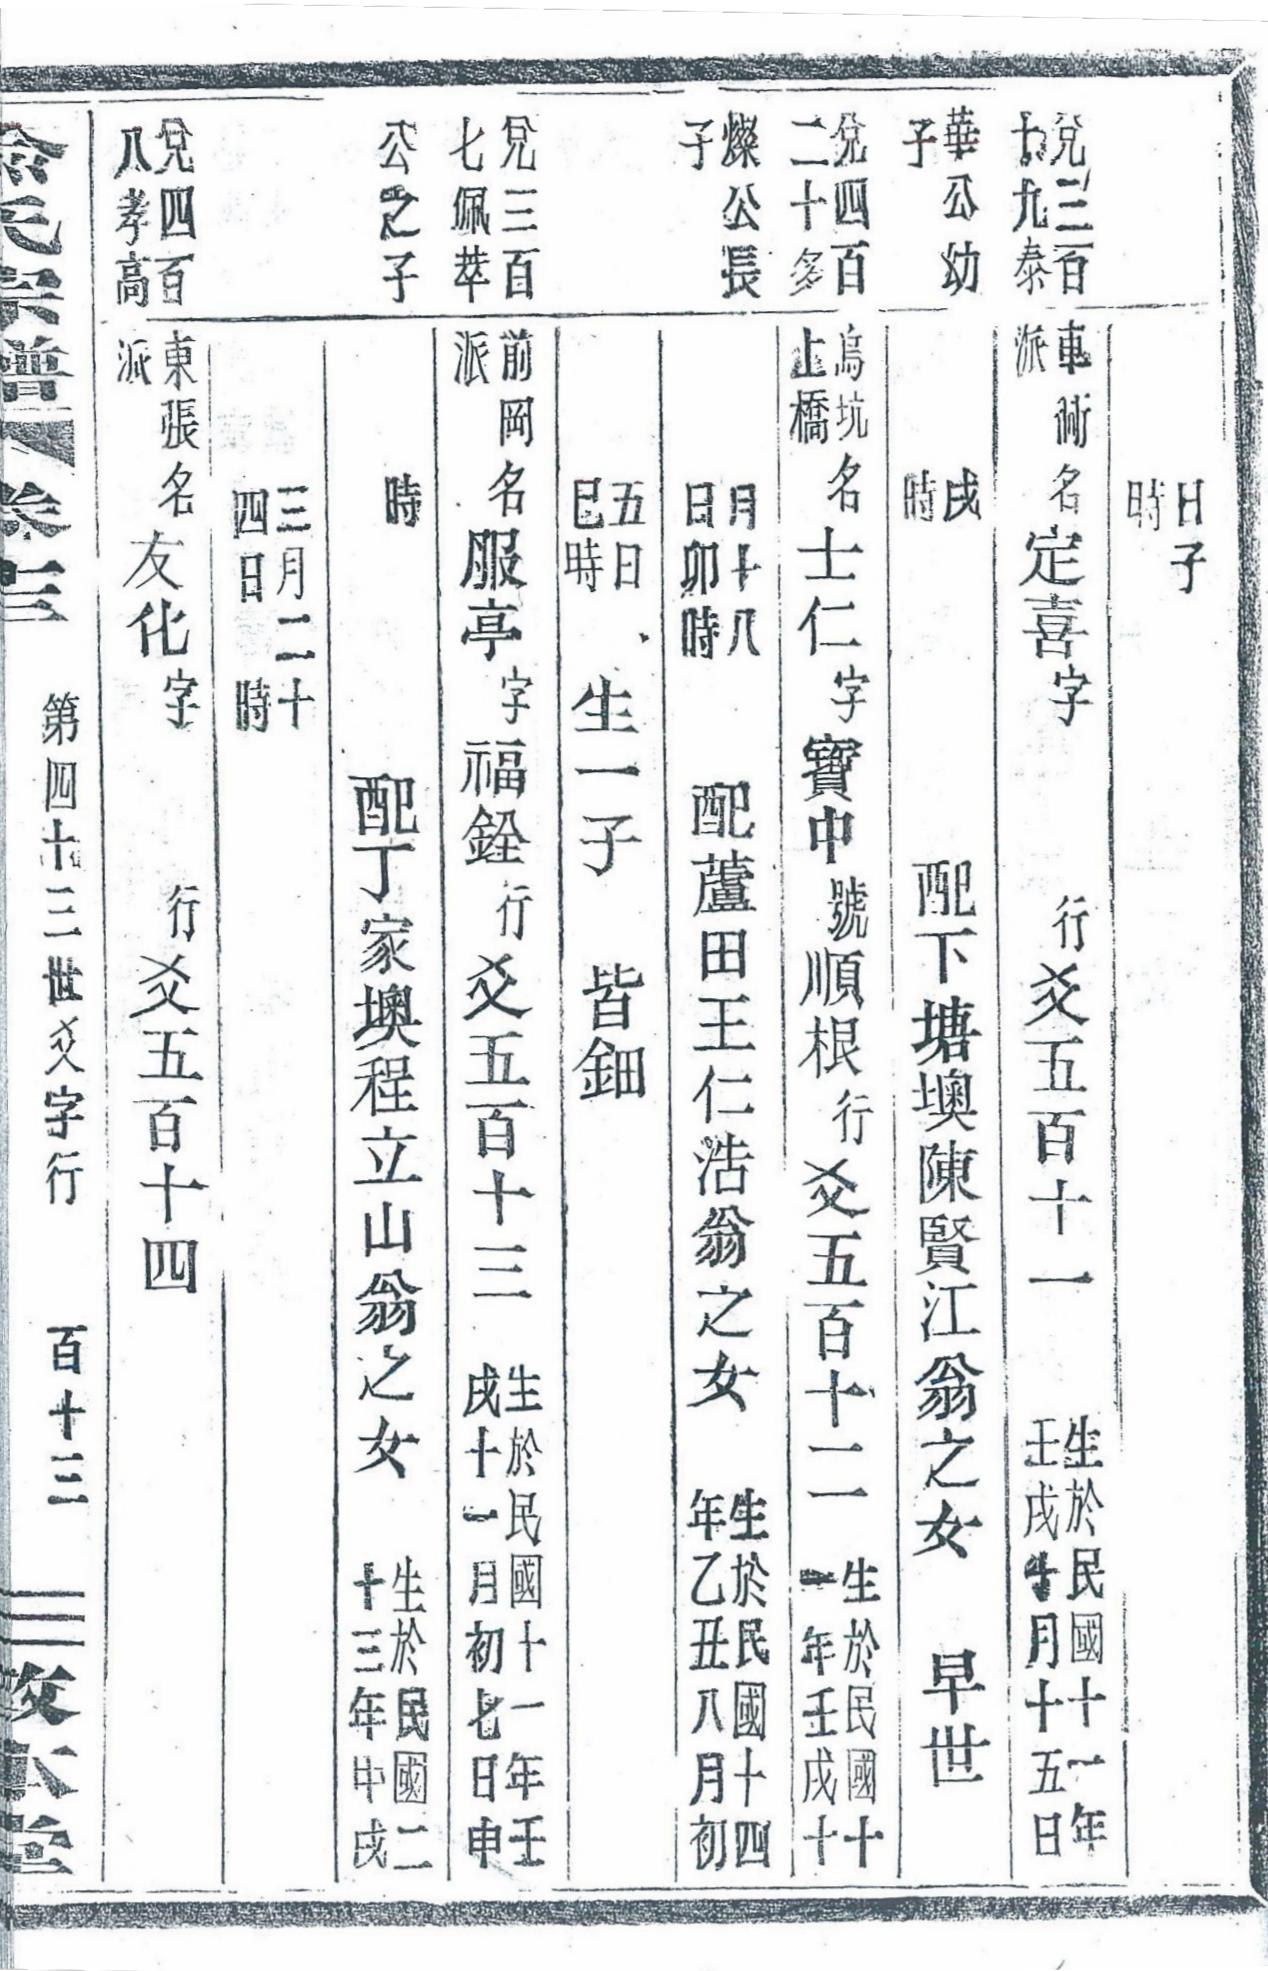 日子
時
兌三百
十九泰
車衕名定喜字 行爻五百十一 生於民國十一年
派 壬戌年月十五日
華公幼
子
戌
時
配下塘墺陳賢江翁之女 早世
兌四百
二十多
烏坑名士仁字寶中號順根行爻五百十二 生於民國十
止橋 一年壬戌十
燦公長
子
月十八
日卯時
配蘆田王仁浩翁之女 生於民國十四
年乙丑八月初
五日
巳時
生一子 皆鈿
兌三百
七佩萃
前岡名服亭字福銓行爻五百十三 生於民國十一年壬
派 戌十一月初七日申
公之子
時
配丁家墺程立山翁之女 生於民國二
十三年甲戌
三月二十
四日 時
兌四百
八孝高
東張名友化字 行爻五百十四
派
俞氏宗譜 卷三 第四十三世爻字行 百十三 敦本堂